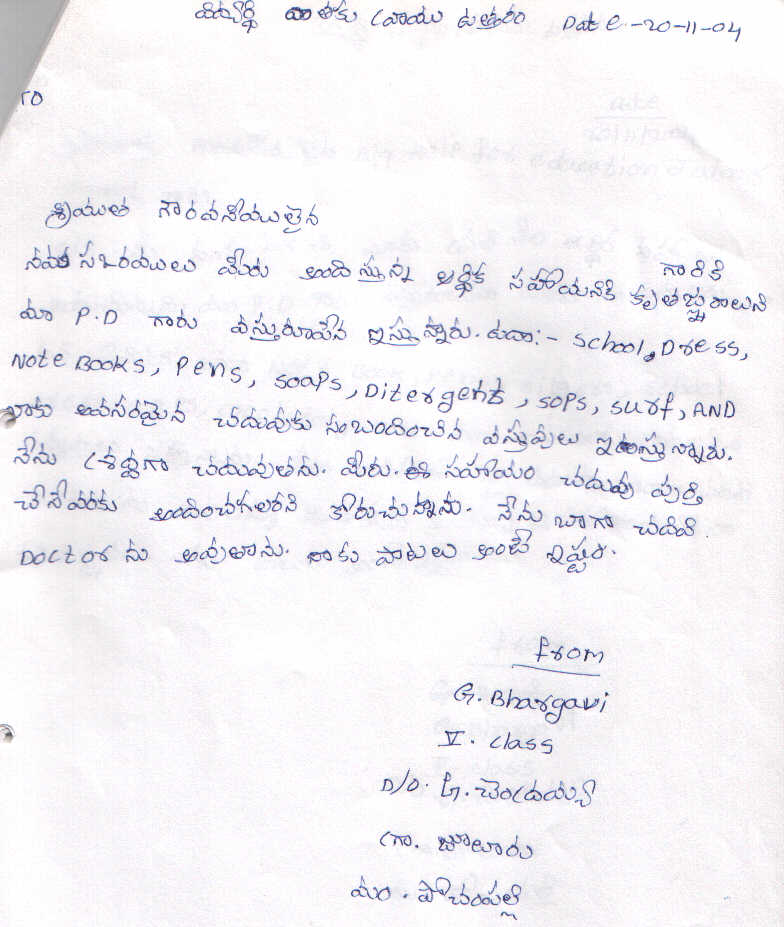 విద్యార్థి దాతకు వ్రాయు ఉత్తరం Date -20-11-04
TO
శ్రీయుత గౌరవనీయులైన గారికి
నమస్కారములు మీరు అందిస్తున్న ఆర్థిక సహాయనికి కృతజ్ఞురాలుని
మా P.D గారు వస్తురూపేన ఇస్తున్నారు. ఉదా:- School, Dress,
Note Books, Pens, Soaps, Ditergent, sops, surf, AND
నాకు అవసరమైన చదువుకు సంబందించిన వస్తువులు ఇస్తున్నారు.
నేను శ్రద్దగా చదువుతను. మీరు ఈ సహాయం చదువు పుర్తి
చేసేవరకు అందించగలరని కోరుచున్నాను. నేను బాగా చదివి
Doctor ను అవుతాను. నాకు పాటలు అంటే ఇష్టం.
from
G. Bhargavi
V. class
D/O. G. చెంద్రయ్య
గ్రా. జూలూరు
మం. పోచంపల్లి